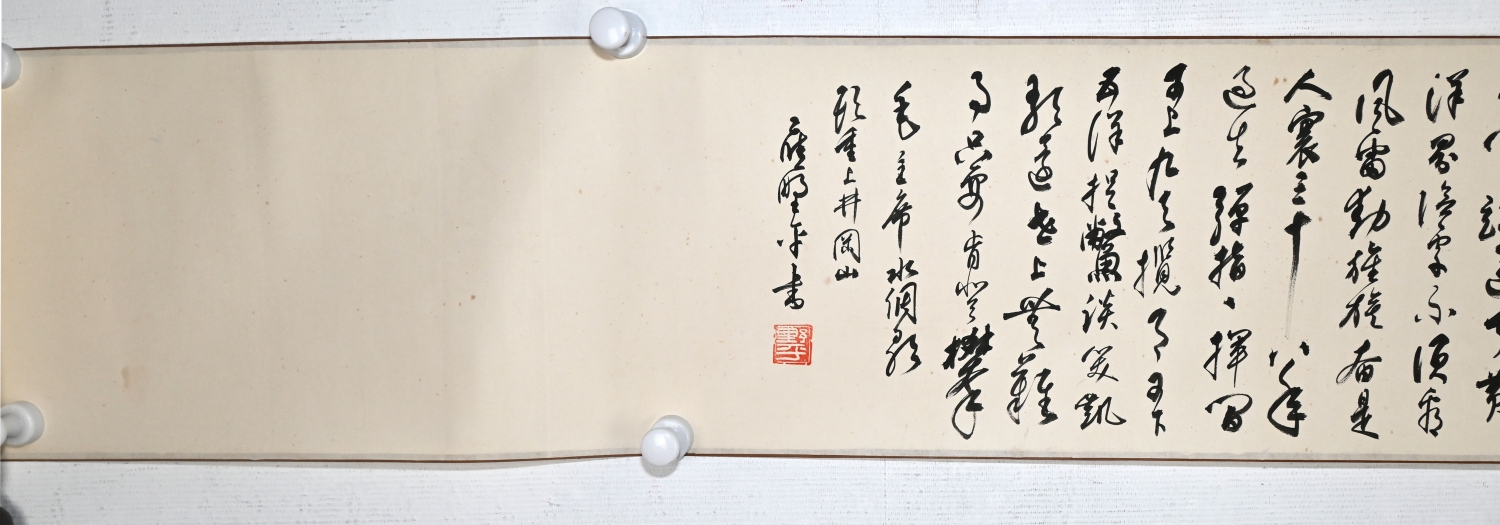 洋界險處不須看
風雷動旌旗奮是
人寰三十八年
過去彈指一揮間
可上九天攬月可下
五洋捉鱉談笑凱
歌還世上無難
事只要肯登攀
毛主席水調歌
頭重上井岡山
應野平書